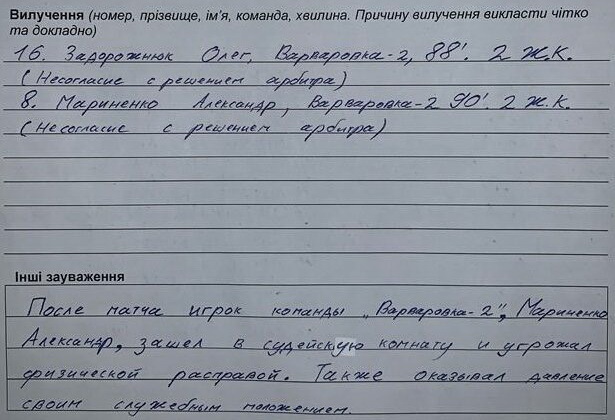 Вилучення (номер, прізвище, ім'я, команда, хвилина. Причину вилучення викласти чітко
та докладно)
16. Задорожнюк Олег, Варваровка-2, 88'. 2 Ж.К.
(Несогласие с решением арбитра)
8. Мариненко Александр, Варваровка-2 90'. 2 Ж.К.
(Несогласие с решением арбитра)
Інші зауваження
После матча игрок команды „Варваровка-2", Мариненко
Александр, зашел в судейскую комнату и угрожал
физической расправой. Также оказывал давление
своим служебным положением.